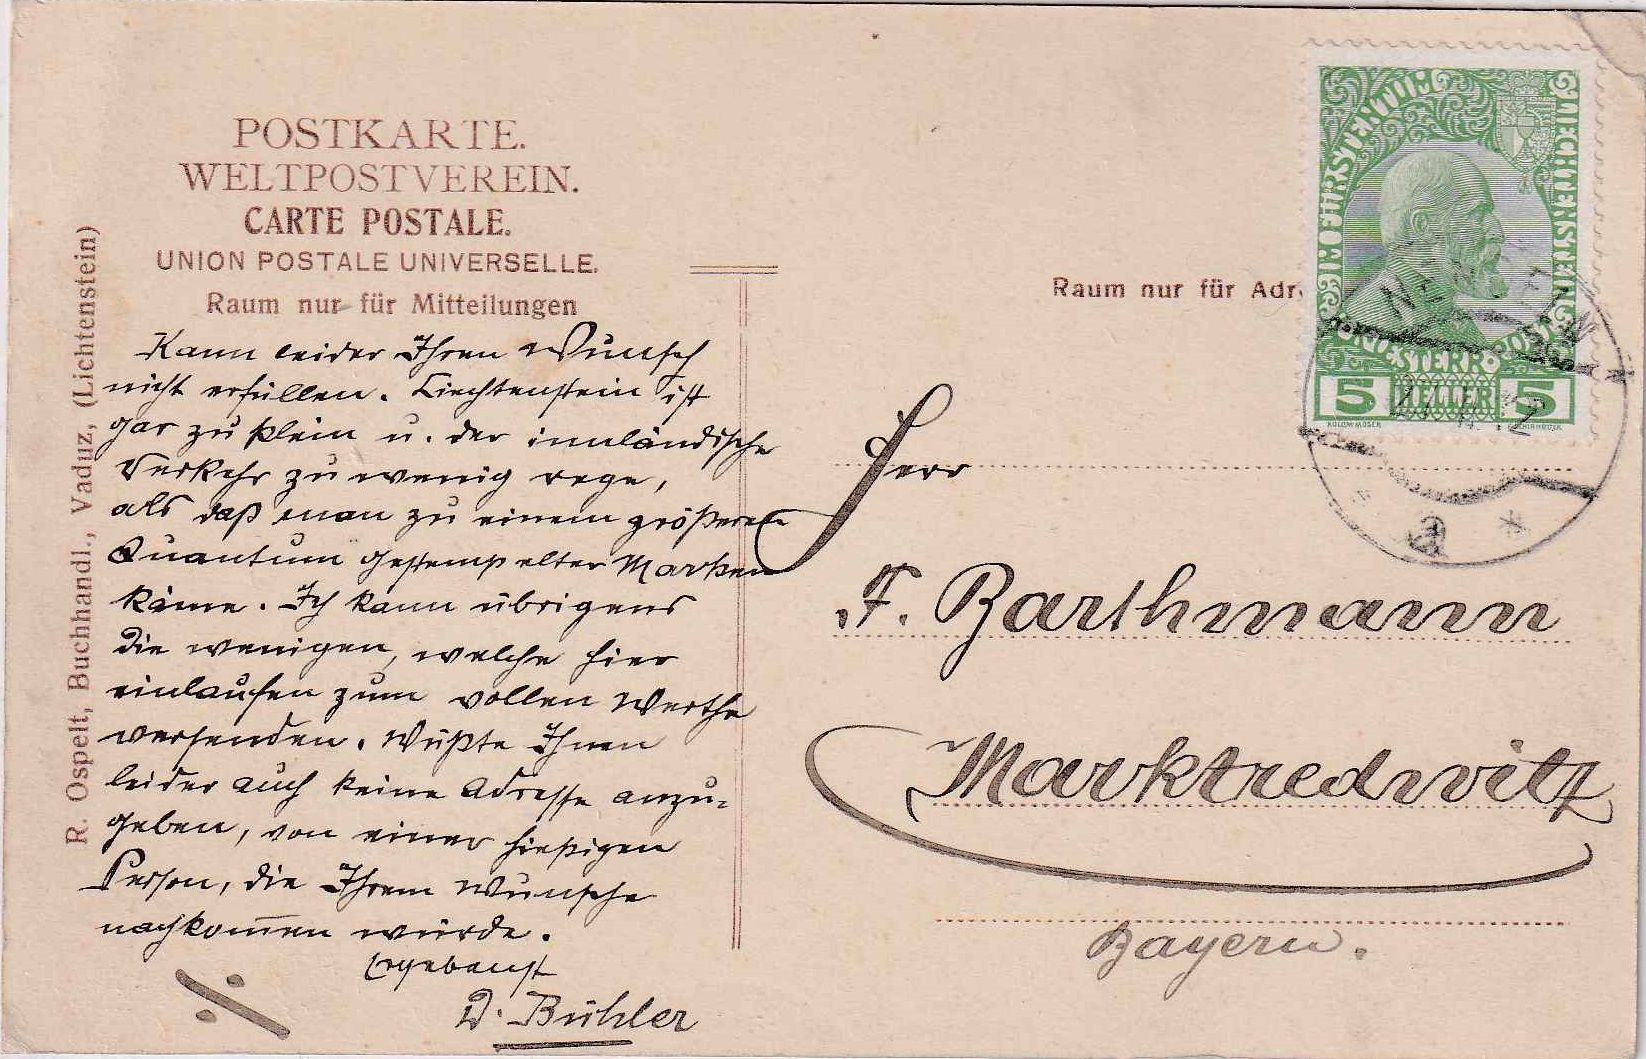 POSTKARTE.
WELTPOSTVEREIN.
CARTE POSTALE.
UNION POSTALE UNIVERSELLE.
Raum nur für Mitteilungen
Kann leider Ihren Wunsch
nicht erfüllen. Liechtenstein ist
gar zu klein u. der innländische
Verkehr zu wenig rege,
als daß man zu einem größeren
Quantum gestempelter Marken
käme. Ich kann übrigens
die wenigen, welche hier
einlaufen zum vollen Werthe
versenden. Wüßte Ihnen
leider auch keine Adresse anzu-
geben, von einer hiesigen
Person, die Ihrem Wunsche
nachkom̅en würde.
Ergebenst
D. Bühler
R. Ospelt, Buchhandl., Vaduz, (Lichtenstein)
Raum nur für Adr
K.K. ÖSTERR. POST
IM FÜRSTENTUM
LIECHTENSTEIN
5 HELLER 5
KOLOM. MOSER
a
Herr
F. Barthmann
Marktredwitz
Bayern.